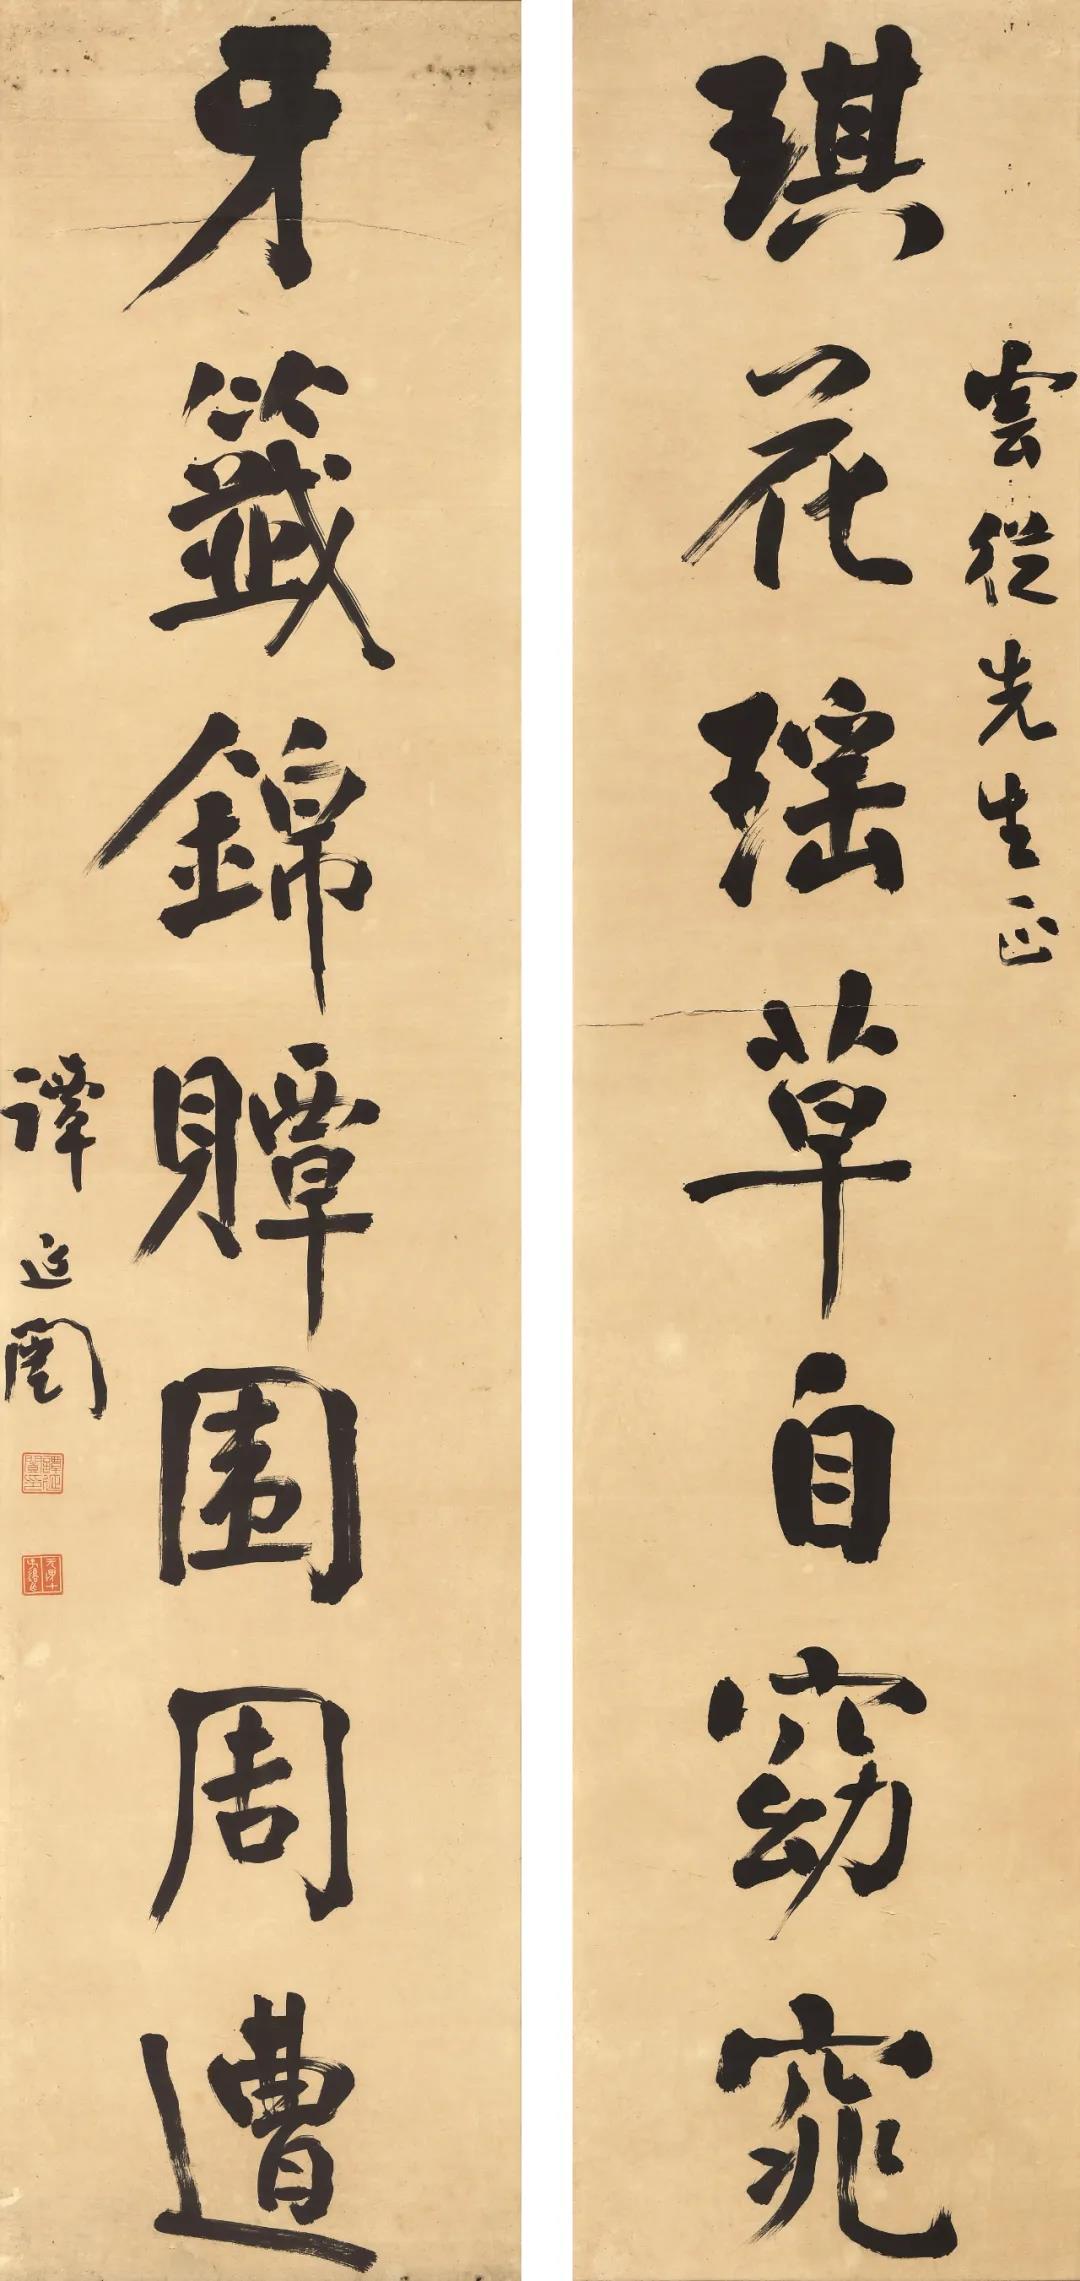 雲從先生正
琪花瑶草自窈窕
牙籤錦贉圍周遭
譚延闓
譚延闓印